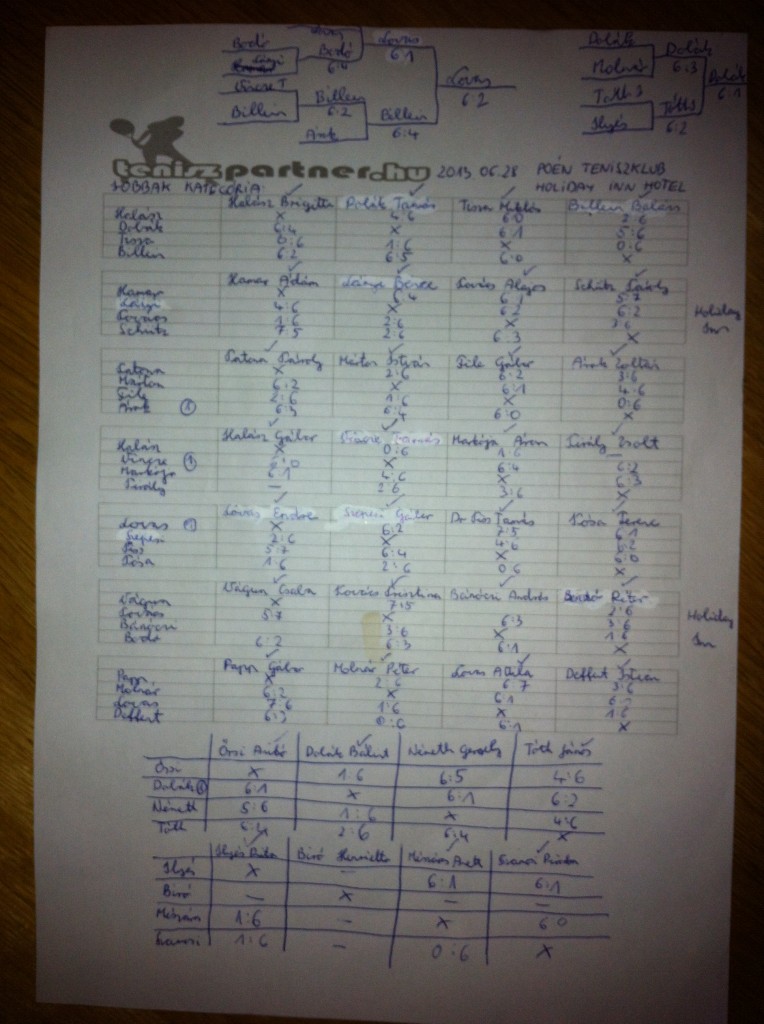 Lovas
Bodó Bodó 6:1 Dolák Dolák
6:4 Molnár 6:3 Dolák
Vincze T Lovas Tóth J Tóth J 6:1
Billein Billein Billein 6:2 Ilyés 6:2
6:2 6:4
Antt
teniszpartner.hu 2013 06.28 POÉN TENISZKLUB
JOBBAK KATEGÓRIA: HOLIDAY INN HOTEL
Halász Brigitta Dolák Tamás Tissa Miklós Billein Balázs
Halász X 4:6 6:0 2:6
Dolák 6:4 X 6:1 5:6
Tissa 0:6 1:6 X 0:6
Billein 6:2 6:5 6:0 X
Hamar Ádám Bence Kovács Alajos Schütz Károly
Hamar X 6:4 6:1 5:7
4:6 X 6:2 6:2 Holiday
Kovács 1:6 2:6 X 3:6 Inn
Schütz 7:5 2:6 6:3 X
Katona Károly Márton István File Gábor Zoltán
Katona X 2:6 6:2 3:6
Márton 6:2 X 6:1 4:6
File 2:6 1:6 X 0:6
6:3 6:4 6:0 X
Halász Gábor Vincze Tamás Áron Király Zsolt
Halász X 0:6 1:6 —
Vincze 6:0 X 6:4 6:2
6:1 4:6 X 6:3
Király — 2:6 3:6 X
Lovas Endre Szepesi Gábor Dr Kós Tamás Kósa Ferenc
Lovas X 6:2 7:5 6:1
Szepesi 2:6 X 4:6 6:2
Kós 5:7 6:4 X 6:0
Kósa 1:6 2:6 0:6 X
Vágun Csaba Kovács Krisztina Bánóczi András Bodó Péter
Vágun X 7:5 2:6
Kovács 5:7 X 6:3 3:6 Holiday
Bánóczi 3:6 X 1:6 Inn
Bodó 6:2 6:3 6:1 X
Papp Gábor Molnár Péter Lovas Attila Deffert István
Papp X 2:6 6:7 3:6
Molnár 6:2 X 6:1 6:
Lovas 7:6 1:6 X 1:6
Deffert 6:3 :6 6:1 X
Őrsi Anikó Dolák Bálint Németh Gergely Tóth János
Őrsi X 1:6 6:5 4:6
Dolák 6:1 X 6:1 6:2
Németh 5:6 1:6 X 4:6
Tóth 6:4 2:6 6:4 X
Ilyés Biró Henrietta Mészáros
Ilyés X — 6:1 6:1
Biró — X — —
Mészáros 1:6 — X 6:0
1:6 — 0:6 X